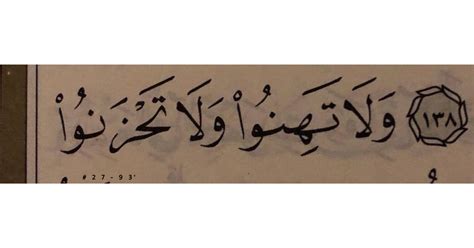 ﴿١٣٨﴾ وَلَا تَهِنُوا۟ وَلَا تَحْزَنُوا۟
#27-93'